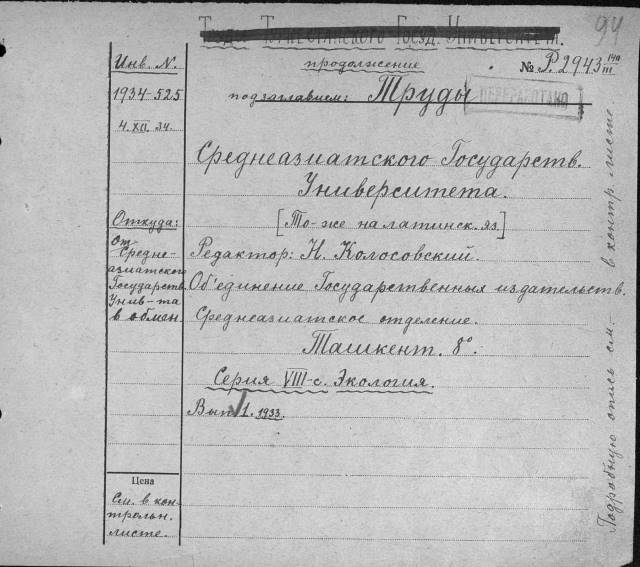 Труды Туркестанского Госуд. Университета.
94
Инв. N.
продолжение
№ Р. 2943 140/III
1934-525
подзаглавием: Труды
ПЕРЕРАБОТАНО
4. XII. 34.
Среднеазиатского Государств.
Университета.
Откуда:
[То-же на латинск. яз.]
От Средне-
азиатского
Государств.
Унив-та
в обмен
Редактор: Н. Колосовский.
Об'единение Государственных издательств.
Среднеазиатское отделение.
Ташкент. 8°.
Серия VIII-с. Экология.
Вып. 1. 1933.
Цена
См. в кон-
трольн.
листе.
Подробную опись см. в контр. листе